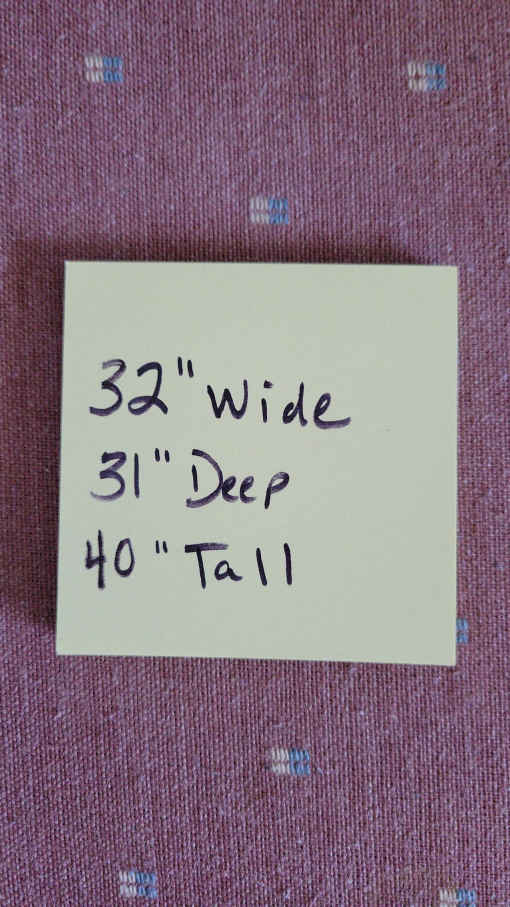 32" Wide
31" Deep
40" Tall